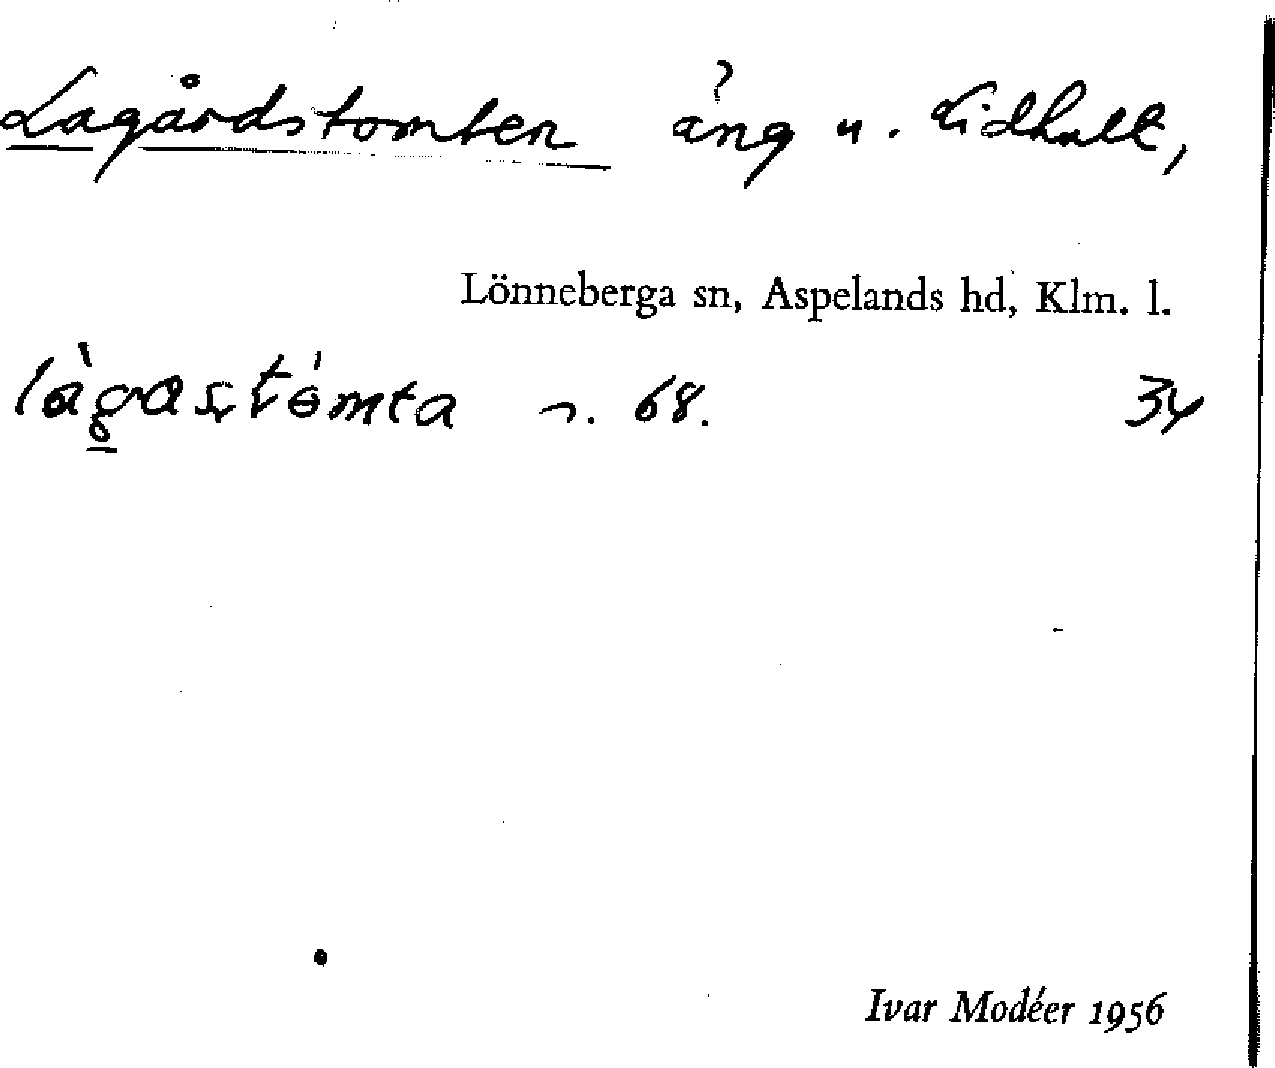 Lagårdstomten äng u. Lidhult,
Lönneberga sn, Aspelands hd, Klm. l.
làgastómta n. 68. 34
Ivar Modéer 1956